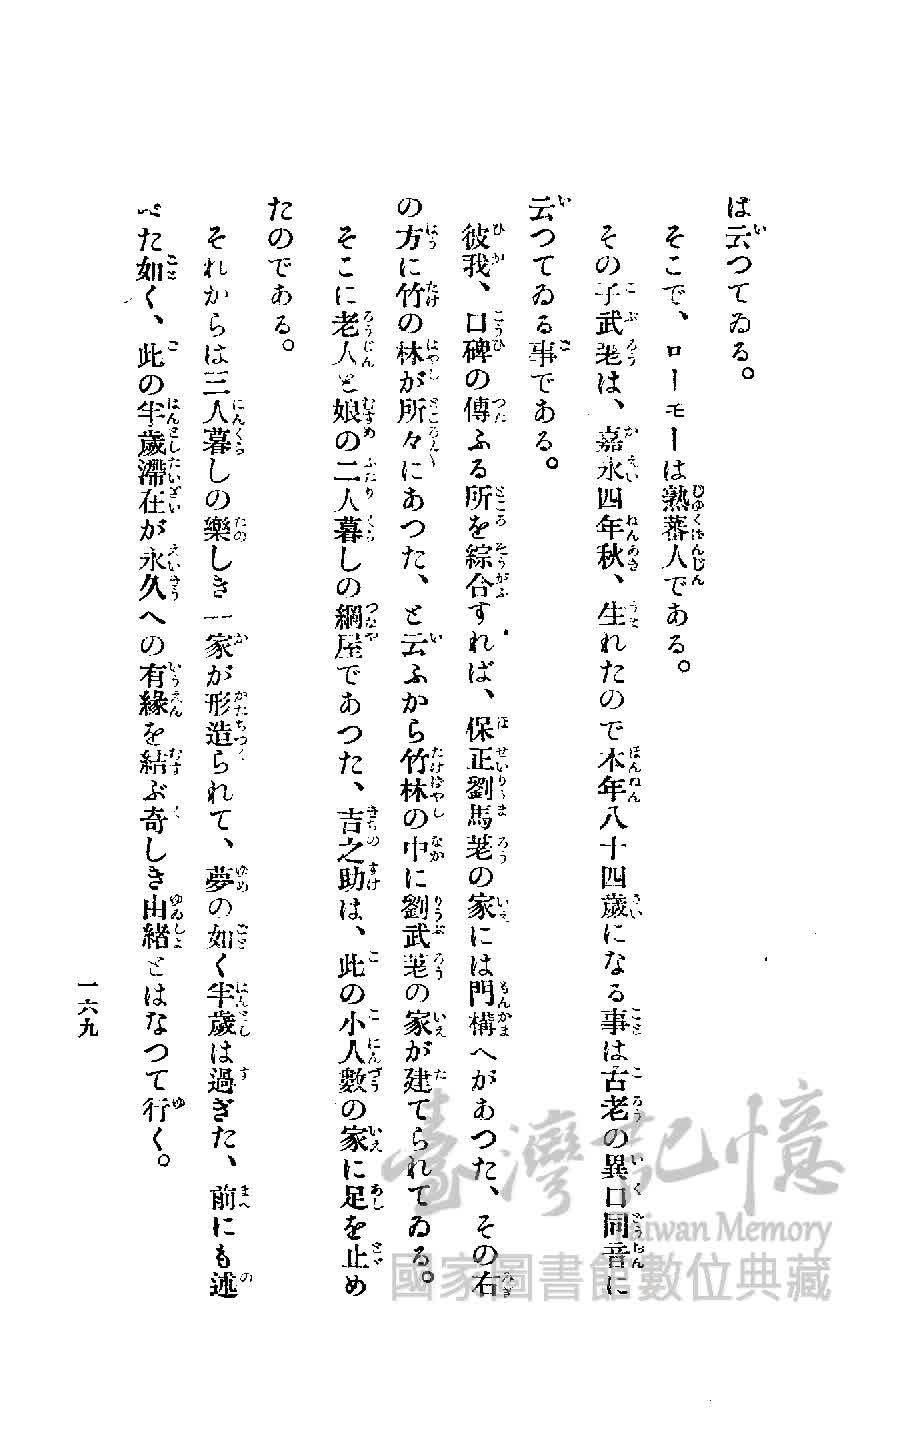 は云つてゐる。
そこで、ローモーは熟蕃人である。
その子武荖は、嘉永四年秋、生れたので本年八十四歲になる事は古老の異口同音に
云つてゐる事である。
彼我、口碑の傳ふる所を綜合すれば、保正劉馬荖の家には門構へがあつた、その右
の方に竹の林が所々にあつた、と云ふから竹林の中に劉武荖の家が建てられてゐる。
そこに老人と娘の二人暮しの綱屋であつた、吉之助は、此の小人數の家に足を止め
たのである。
それからは三人暮しの樂しき一家が形造られて、夢の如く半歲は過ぎた、前にも述
べた如く、此の半歲滯在が永久への有緣を結ぶ奇しき由緒とはなつて行く。
一六九
臺灣記憶
Taiwan Memory
國家圖書館數位典藏